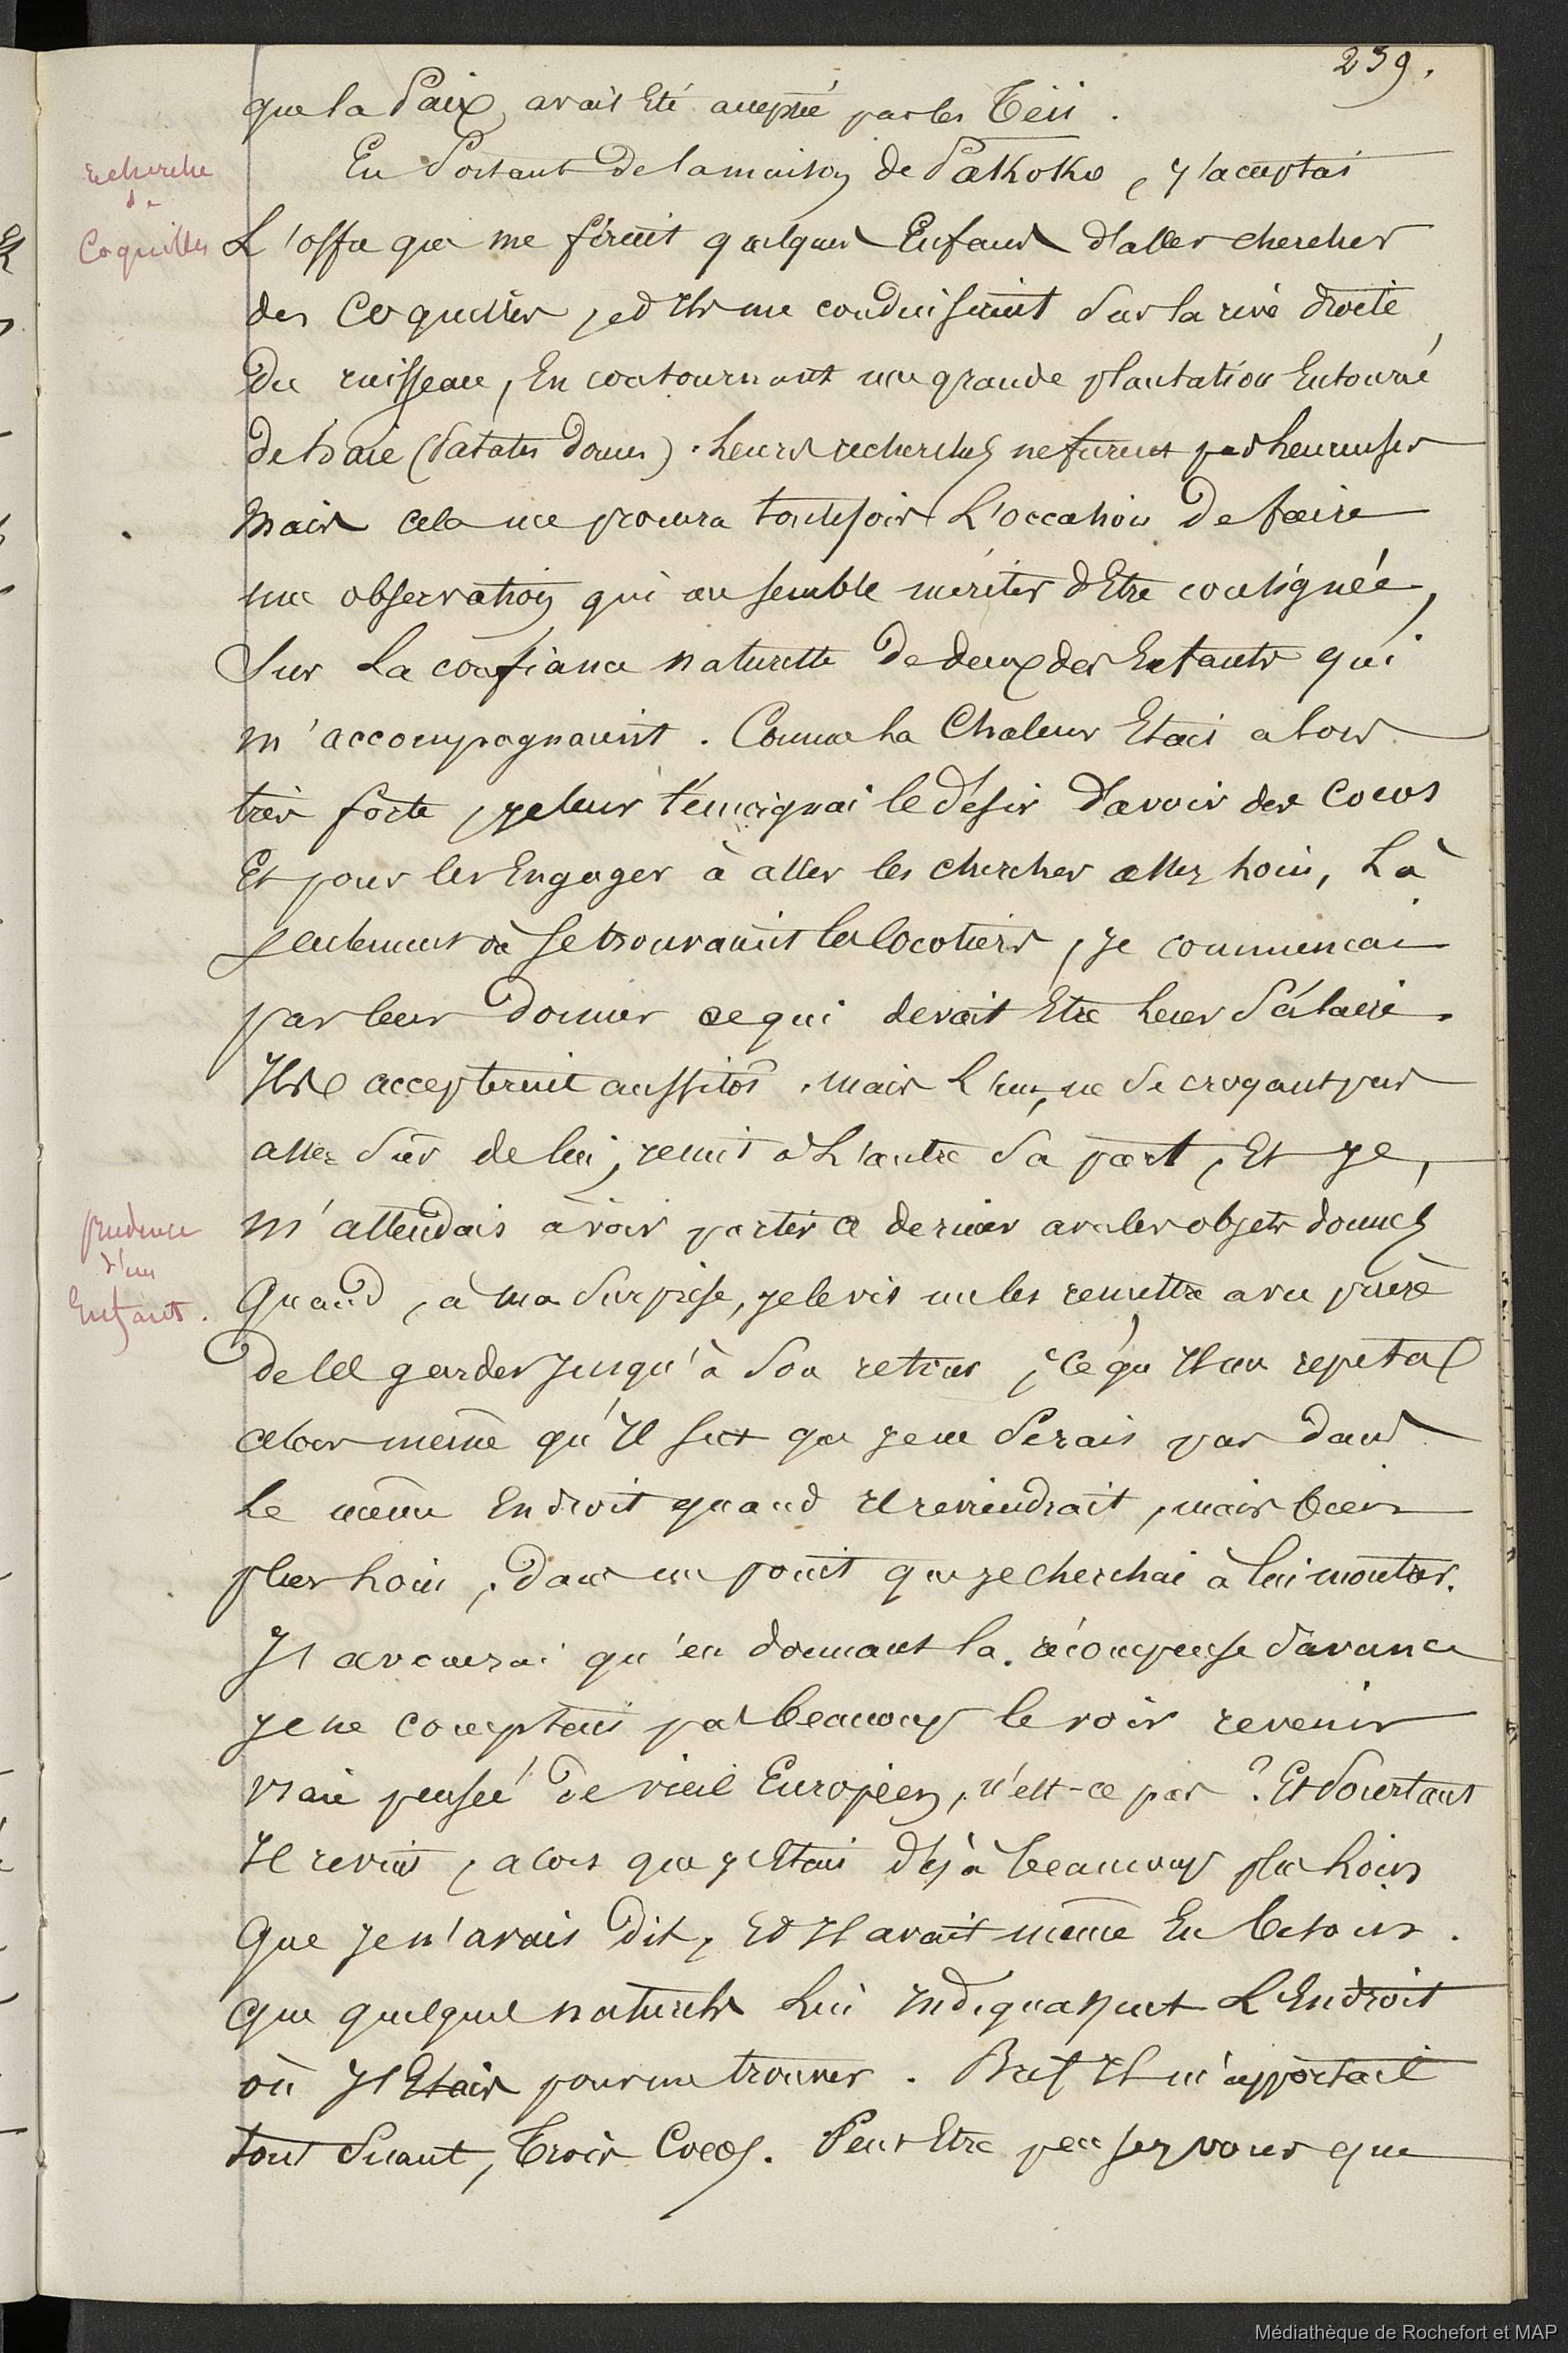 239.
que la Paix, avait Eté acceptée par les Teii.
En Sortant de la maison de Pakoko, j'acceptai
recherche
de
Coquilles
L'offre que me firent quelques Enfans d'aller chercher
des Coquilles, et Ils me conduisirent Sur la rive droite
du ruisseau, En contournant une grande plantation Entourée
de haie (Patates douces). Leurs recherches ne furent pas heureuses
Mais cela me procura toutefois L'occasion de faire
une observation qui me semble mériter d'Etre consignée,
Sur La confiance naturelle de deux des Enfants qui
m'accompagnaient. Comme La Chaleur Etait alors
très forte, je leur témoignai le désir d'avoir des Cocos
Et pour les Engager à aller les chercher assez Loin, Là
seulement où se trouvaient les Cocotiers, je commençai
par leur donner ce qui devait Etre Leur Salaire.
Ils accepterent aussitôt. mais L'un, ne Se croyant pas
assez Sûr de lui, remit à L'autre Sa part, Et je,
m'attendais à voir partir ce dernier avec les objets donnés
prudence
d'un
Enfant.
Quand, à ma Surprise, je le vis me les remettre avec prière
de les garder jusqu'à Son retour, ce qu'Il me repeta
alors même qu'Il sut que je ne Serais pas dans
Le même Endroit quand Il reviendrait, mais bien
plus Loin, dans un point que je cherchai à lui montrer.
J'avouerai qu'en donnant la récompense d'avance
je ne comptais pas beaucoup le voir revenir
vraie pensée de vieil Européen, n'est-ce pas? Et Pourtant
Il revint, alors que j'Etais déjà beaucoup plus Loin
Que je n'avais dit, Et Il avait même Eu besoin.
que quelques naturels Lui Indiquassent L'Endroit
où J'Etais pour me trouver. Bref Il m'apportait
tout Suant, Trois Cocos. Peut Etre pensez vous que
Médiathèque de Rochefort et MAP